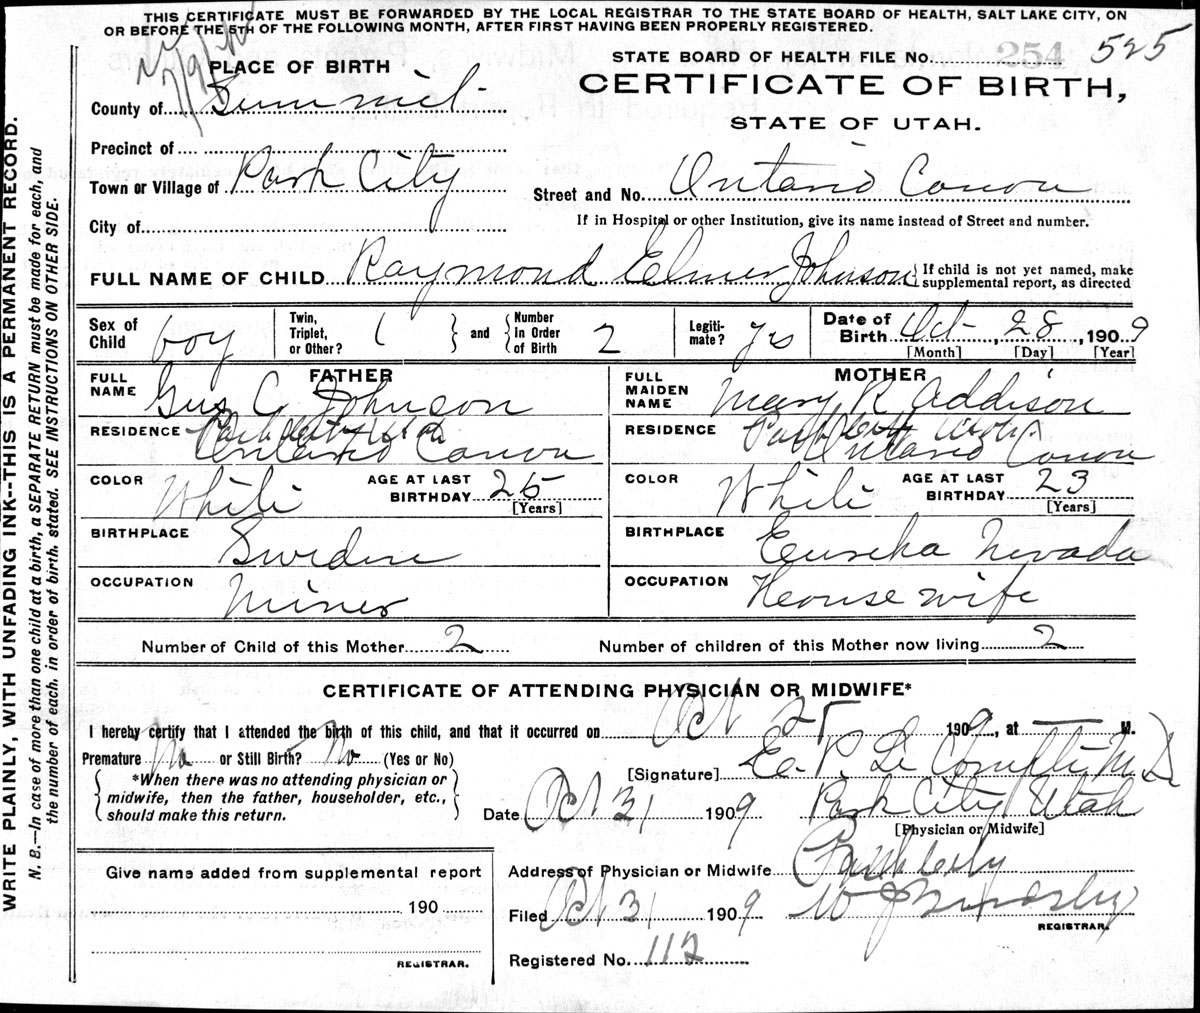 THIS CERTIFICATE MUST BE FORWARDED BY THE LOCAL REGISTRAR TO THE STATE BOARD OF HEALTH, SALT LAKE CITY, ON
OR BEFORE THE 5TH OF THE FOLLOWING MONTH, AFTER FIRST HAVING BEEN PROPERLY REGISTERED.
WRITE PLAINLY, WITH UNFADING INK--THIS IS A PERMANENT RECORD.
N. B.—In case of more than one child at a birth, a SEPARATE RETURN must be made for each, and
the number of each, in order of birth, stated. SEE INSTRUCTIONS ON OTHER SIDE.
PLACE OF BIRTH
STATE BOARD OF HEALTH FILE No. 254 525
CERTIFICATE OF BIRTH,
STATE OF UTAH.
County of Summit
Precinct of
Town or Village of Park City
Street and No. Ontario Canon
City of
If in Hospital or other Institution, give its name instead of Street and number.
FULL NAME OF CHILD Raymond Elmer Johnson { If child is not yet named, make
supplemental report, as directed
Sex of Child boy
Twin, Triplet, or Other? 1 } and { Number In Order of Birth 2
Legiti- mate? yes
Date of Birth Oct - 28, 1909
[Month] [Day] [Year]
FATHER
FULL NAME Gus C Johnson
RESIDENCE Park City Utah
Ontario Canon
COLOR White AGE AT LAST BIRTHDAY 25
[Years]
BIRTHPLACE Sweden
OCCUPATION Miner
MOTHER
FULL MAIDEN NAME Mary R Addison
RESIDENCE Park City Utah
Ontario Canon
COLOR White AGE AT LAST BIRTHDAY 23
[Years]
BIRTHPLACE Eureka Nevada
OCCUPATION House wife
Number of Child of this Mother 2 Number of children of this Mother now living 2
CERTIFICATE OF ATTENDING PHYSICIAN OR MIDWIFE*
I hereby certify that I attended the birth of this child, and that it occurred on Oct 28 1909, at M.
Premature No or Still Birth? No (Yes or No)
{ *When there was no attending physician or
midwife, then the father, householder, etc.,
should make this return. }
[Signature] E. P. Le Compte M.D.
Date Oct 31 1909 Park City Utah
[Physician or Midwife]
Give name added from supplemental report
190
REGISTRAR.
Address of Physician or Midwife Park City
Filed Oct 31 1909
REGISTRAR.
Registered No. 112